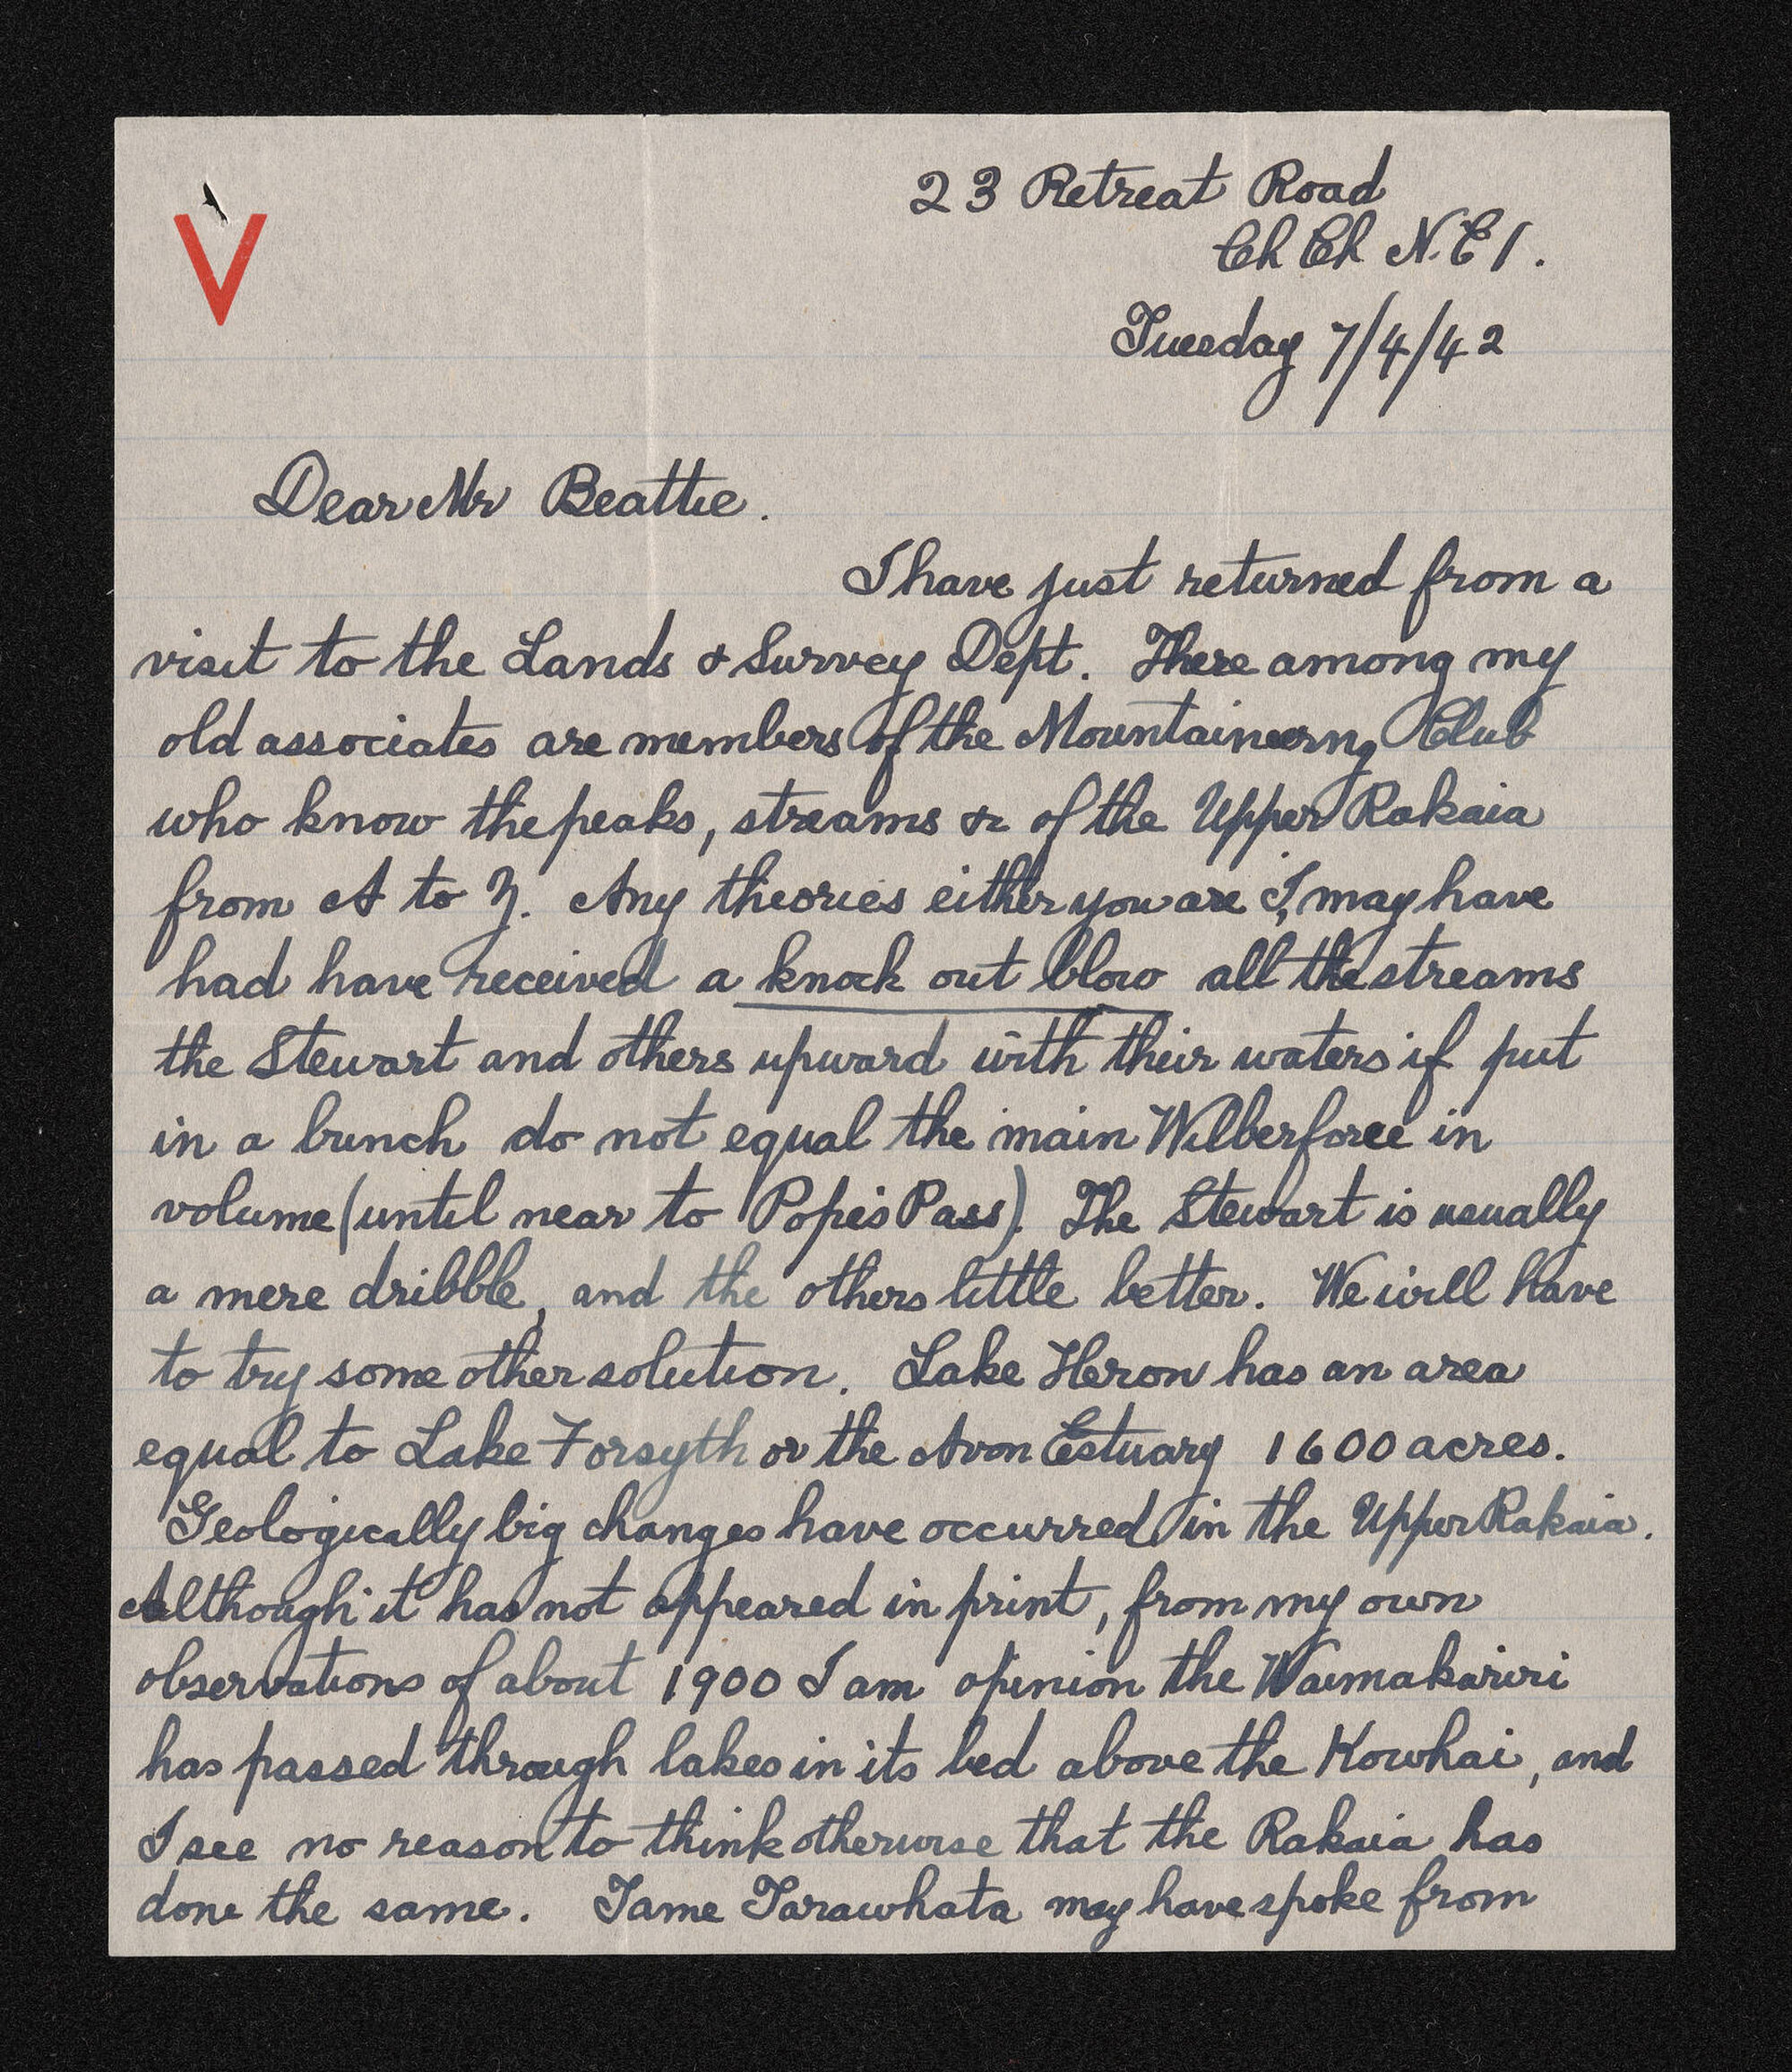 V
23 Retreat Road
Ch Ch N.E1.
Tuesday 7/4/42
Dear Mr Beattie.
I have just returned from a
visit to the Lands & Survey Dept. There among my
old associates are members of the Mountaineerng Club
who know the peaks, streams &c of the Upper Rakaia
from A to Z. Any theories either you are I, may have
had have received a knock out blow all the streams
the Stewart and others upward with their waters if put
in a bunch do not equal the main Wilberforce in
volume (until near to Popes Pass). The Stewart is usually
a mere dribble, and the others little better. We will have
to try some other solution. Lake Heron has an area
equal to Lake Forsyth or the Avon Estuary 1600 acres.
Geologically big changes have occurred in the Upper Rakaia.
Although it has not appeared in print, from my own
observations of about 1900 I am opinion the Waimakariri
has passed through lakes in its bed above the Kowhai, and
I see no reason to think otherwise that the Rakaia has
done the same. Tame Tarawhata may have spoke from